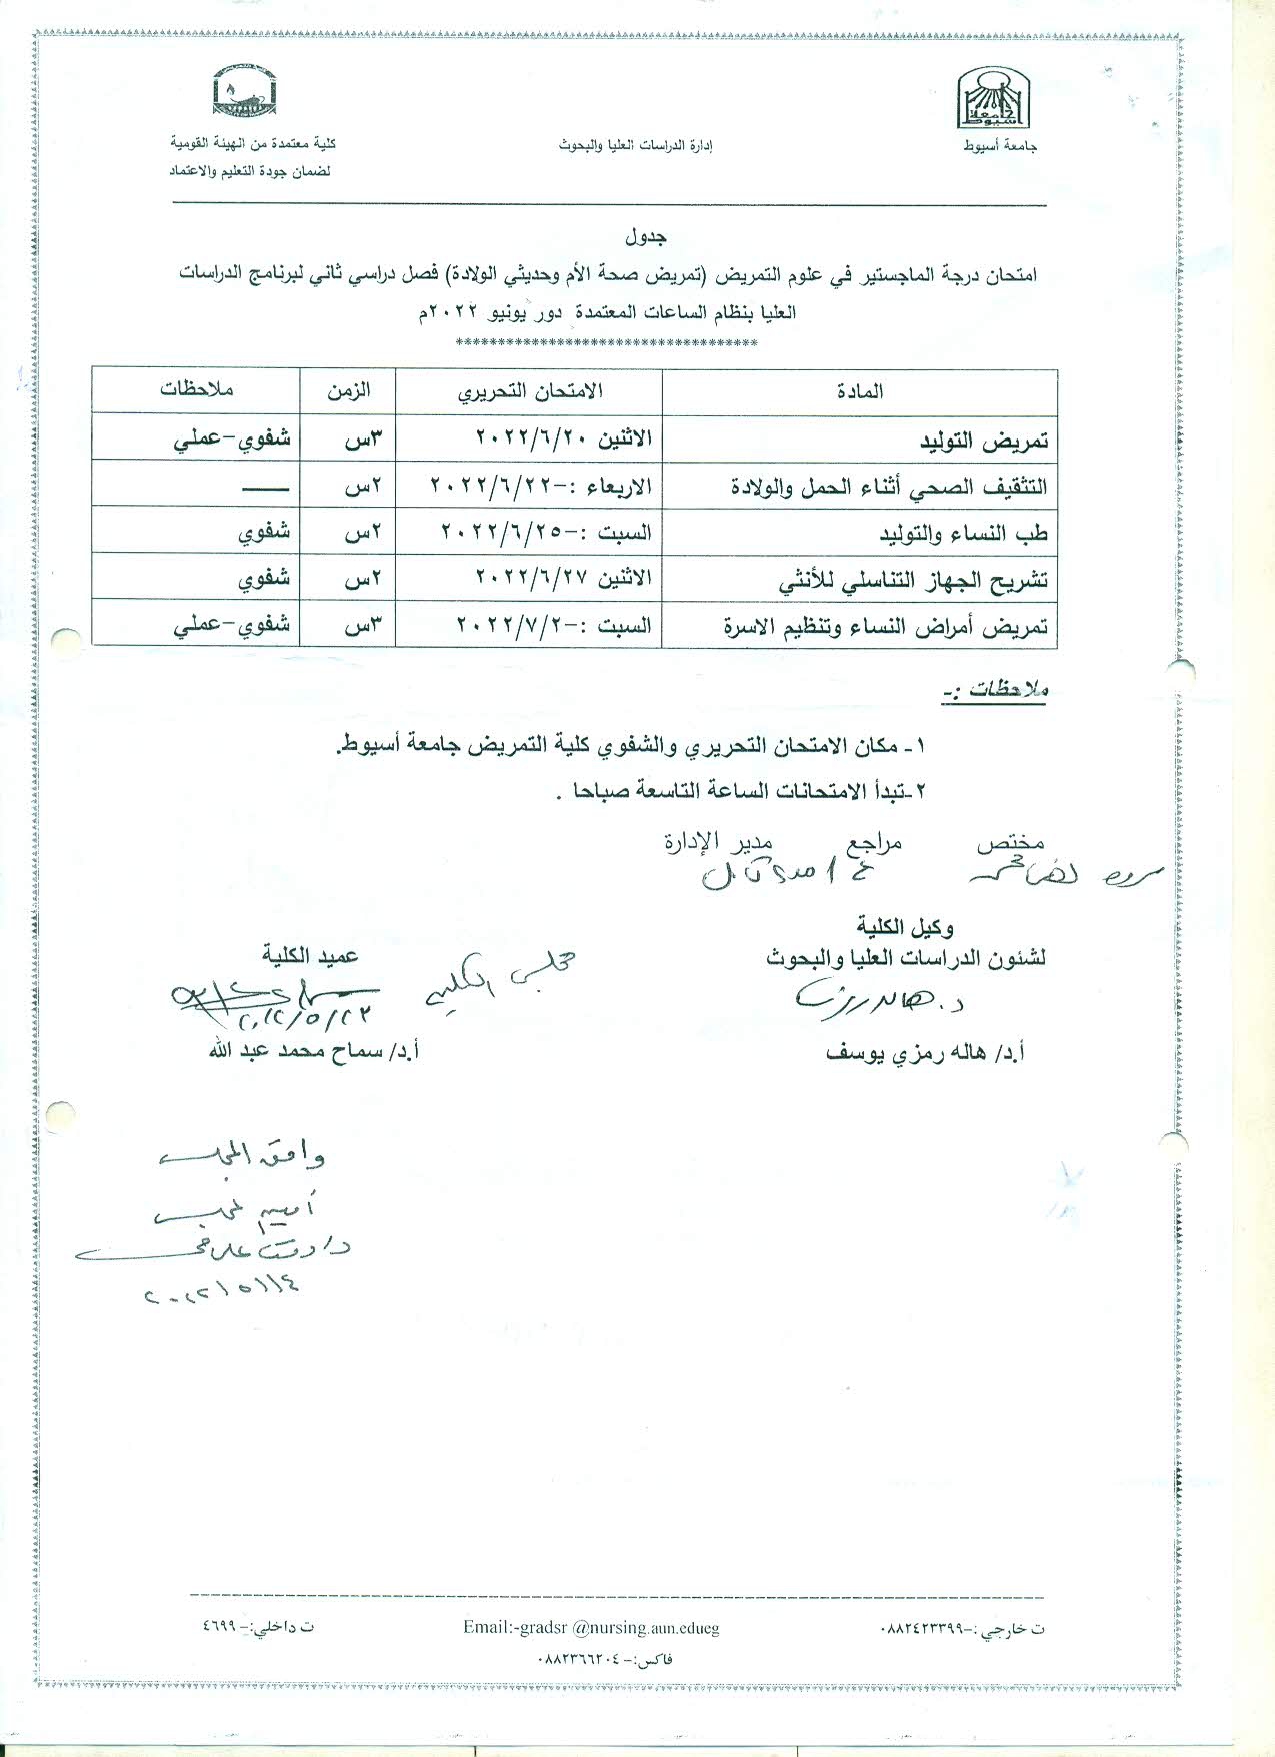 جامعة أسيوط
إدارة الدراسات العليا والبحوث
كلية معتمدة من الهيئة القومية
لضمان جودة التعليم والاعتماد
جدول
امتحان درجة الماجستير في علوم التمريض (تمريض صحة الأم وحديثي الولادة) فصل دراسي ثاني لبرنامج الدراسات
العليا بنظام الساعات المعتمدة دور يونيو ٢٠٢٢م
************************************
المادة الامتحان التحريري الزمن ملاحظات
تمريض التوليد الاثنين ٢٠٢٢/٦/٢٠ ٣س شفوي-عملي
التثقيف الصحي أثناء الحمل والولادة الاربعاء :-٢٠٢٢/٦/٢٢ ٢س ——
طب النساء والتوليد السبت :-٢٠٢٢/٦/٢٥ ٢س شفوي
تشريح الجهاز التناسلي للأنثي الاثنين ٢٠٢٢/٦/٢٧ ٢س شفوي
تمريض أمراض النساء وتنظيم الاسرة السبت :-٢٠٢٢/٧/٢ ٣س شفوي-عملي
ملاحظات :-
١- مكان الامتحان التحريري والشفوي كلية التمريض جامعة أسيوط.
٢-تبدأ الامتحانات الساعة التاسعة صباحا .
مختص مراجع مدير الإدارة
وكيل الكلية
لشئون الدراسات العليا والبحوث عميد الكلية
مجلس الكلية
أ.د/ هاله رمزي يوسف أ.د/ سماح محمد عبد الله
وافق المجلس
أمين المجلس
ت خارجي :-٠٨٨٢٤٢٣٣٩٩ Email:-gradsr @nursing.aun.edueg ت داخلي:-٤٦٩٩
فاكس:-٠٨٨٢٣٦٦٢٠٤